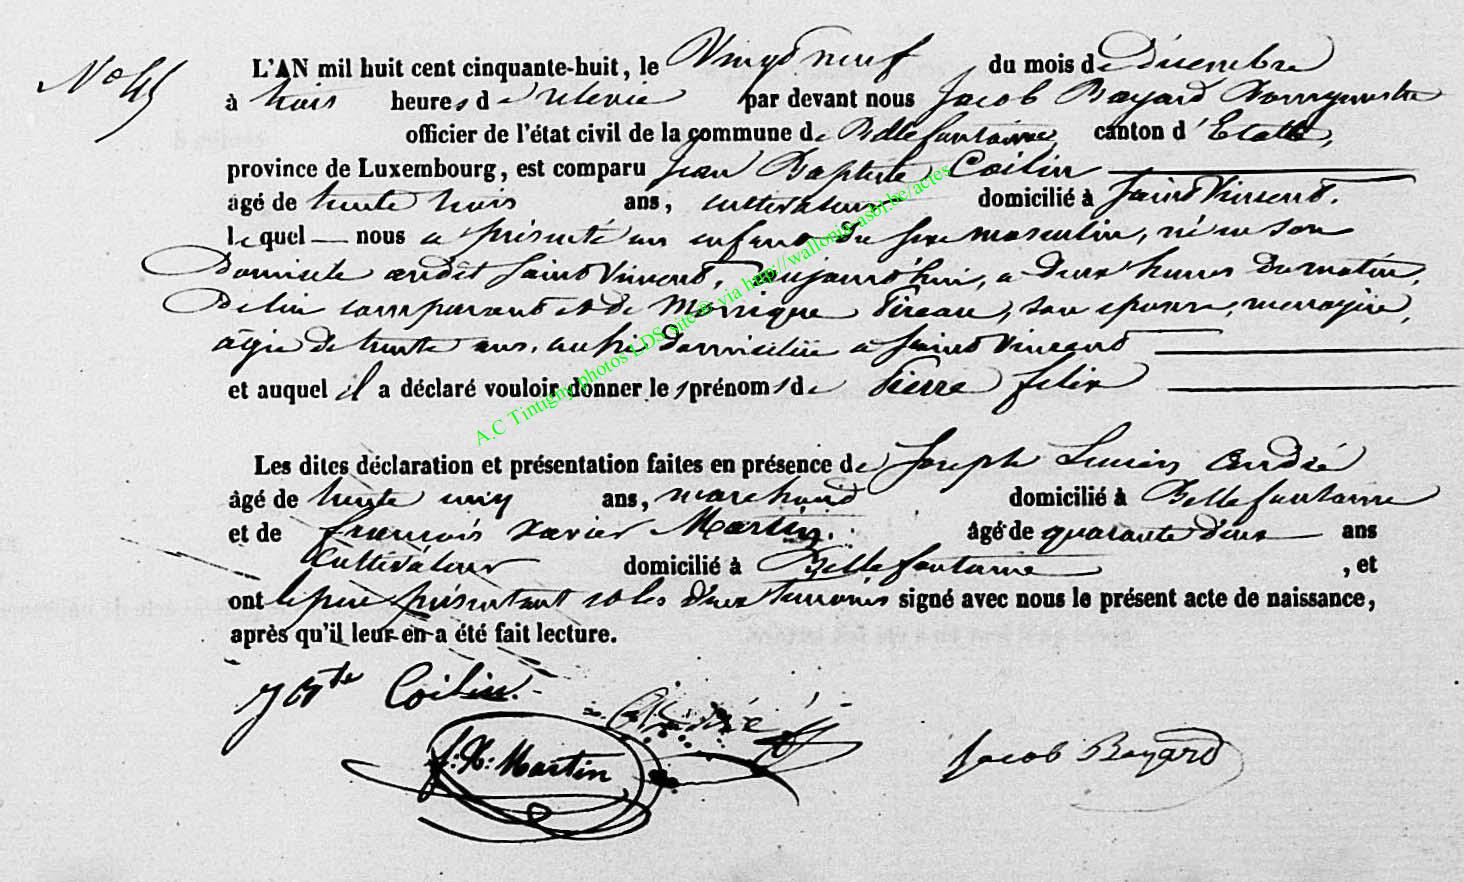 N° 45
L'AN mil huit cent cinquante-huit, le Vingt neuf du mois de Décembre
à trois heures de relevée par devant nous Jacob Bayard Bourgmestre
officier de l'état civil de la commune de Bellefontaine, canton d'Etalle,
province de Luxembourg, est comparu Jean Baptiste Coilin
âgé de trente trois ans, cultivateur domicilié à Saint Vincent.
lequel nous a présenté un enfant du sexe masculin, né en son
Domicile audit Saint Vincent, aujourd'hui, a deux heures du matin,
De lui comparant et de Monique Pireau, son épouse, menagère,
agée de trente ans, aussi domiciliée a Saint Vincent
et auquel il a déclaré vouloir donner les prénoms de Pierre felix
Les dites déclaration et présentation faites en présence de Joseph Lucien André
âgé de trente ans, marchand domicilié à Bellefontaine
et de francois xavier Martin. âgé de quarante deux ans
Cultivateur domicilié à Bellefontaine, et
ont le père présentant et les deux temoins signé avec nous le présent acte de naissance,
après qu'il leur en a été fait lecture.
J Bte Coilin.
André
f: X: Martin
Jacob Bayard
A.C Tintigny photos LDS site @ via http://wallonia-asbl.be/actes